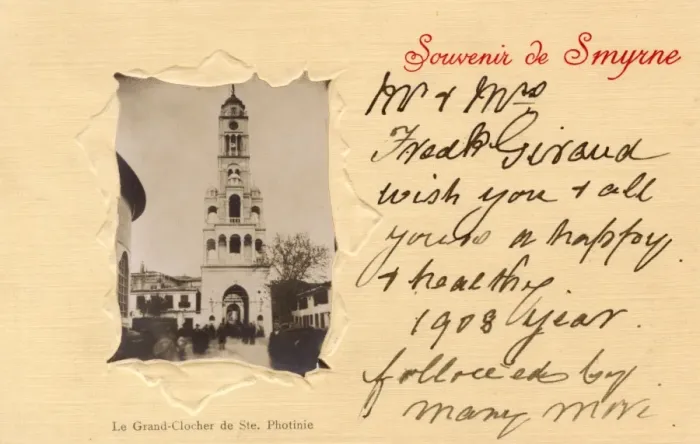 Souvenir de Smyrne
Mr & Mrs
Fredk Giraud
wish you & all
yours a happy
& healthy
1908 year.
followed by
many more
Le Grand-Clocher de Ste. Photinie